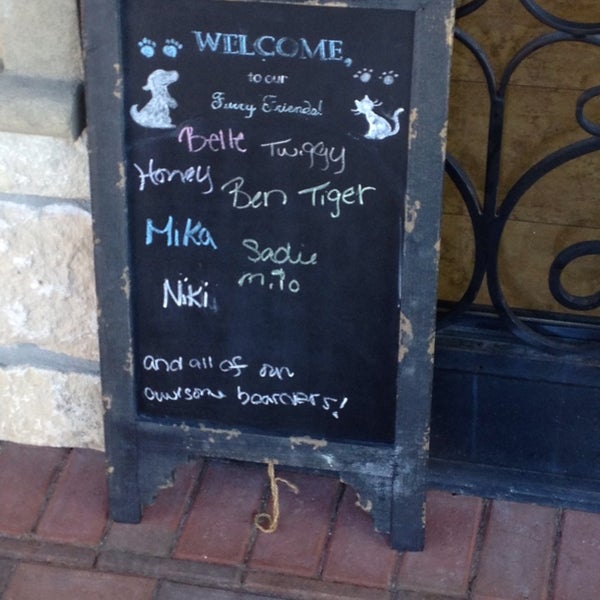 WELCOME,
to our
Furry Friends!
Belle Twiggy
Honey Ben Tiger
Mika Sadie
Milo
Niki
and all of our
awesome boarders!